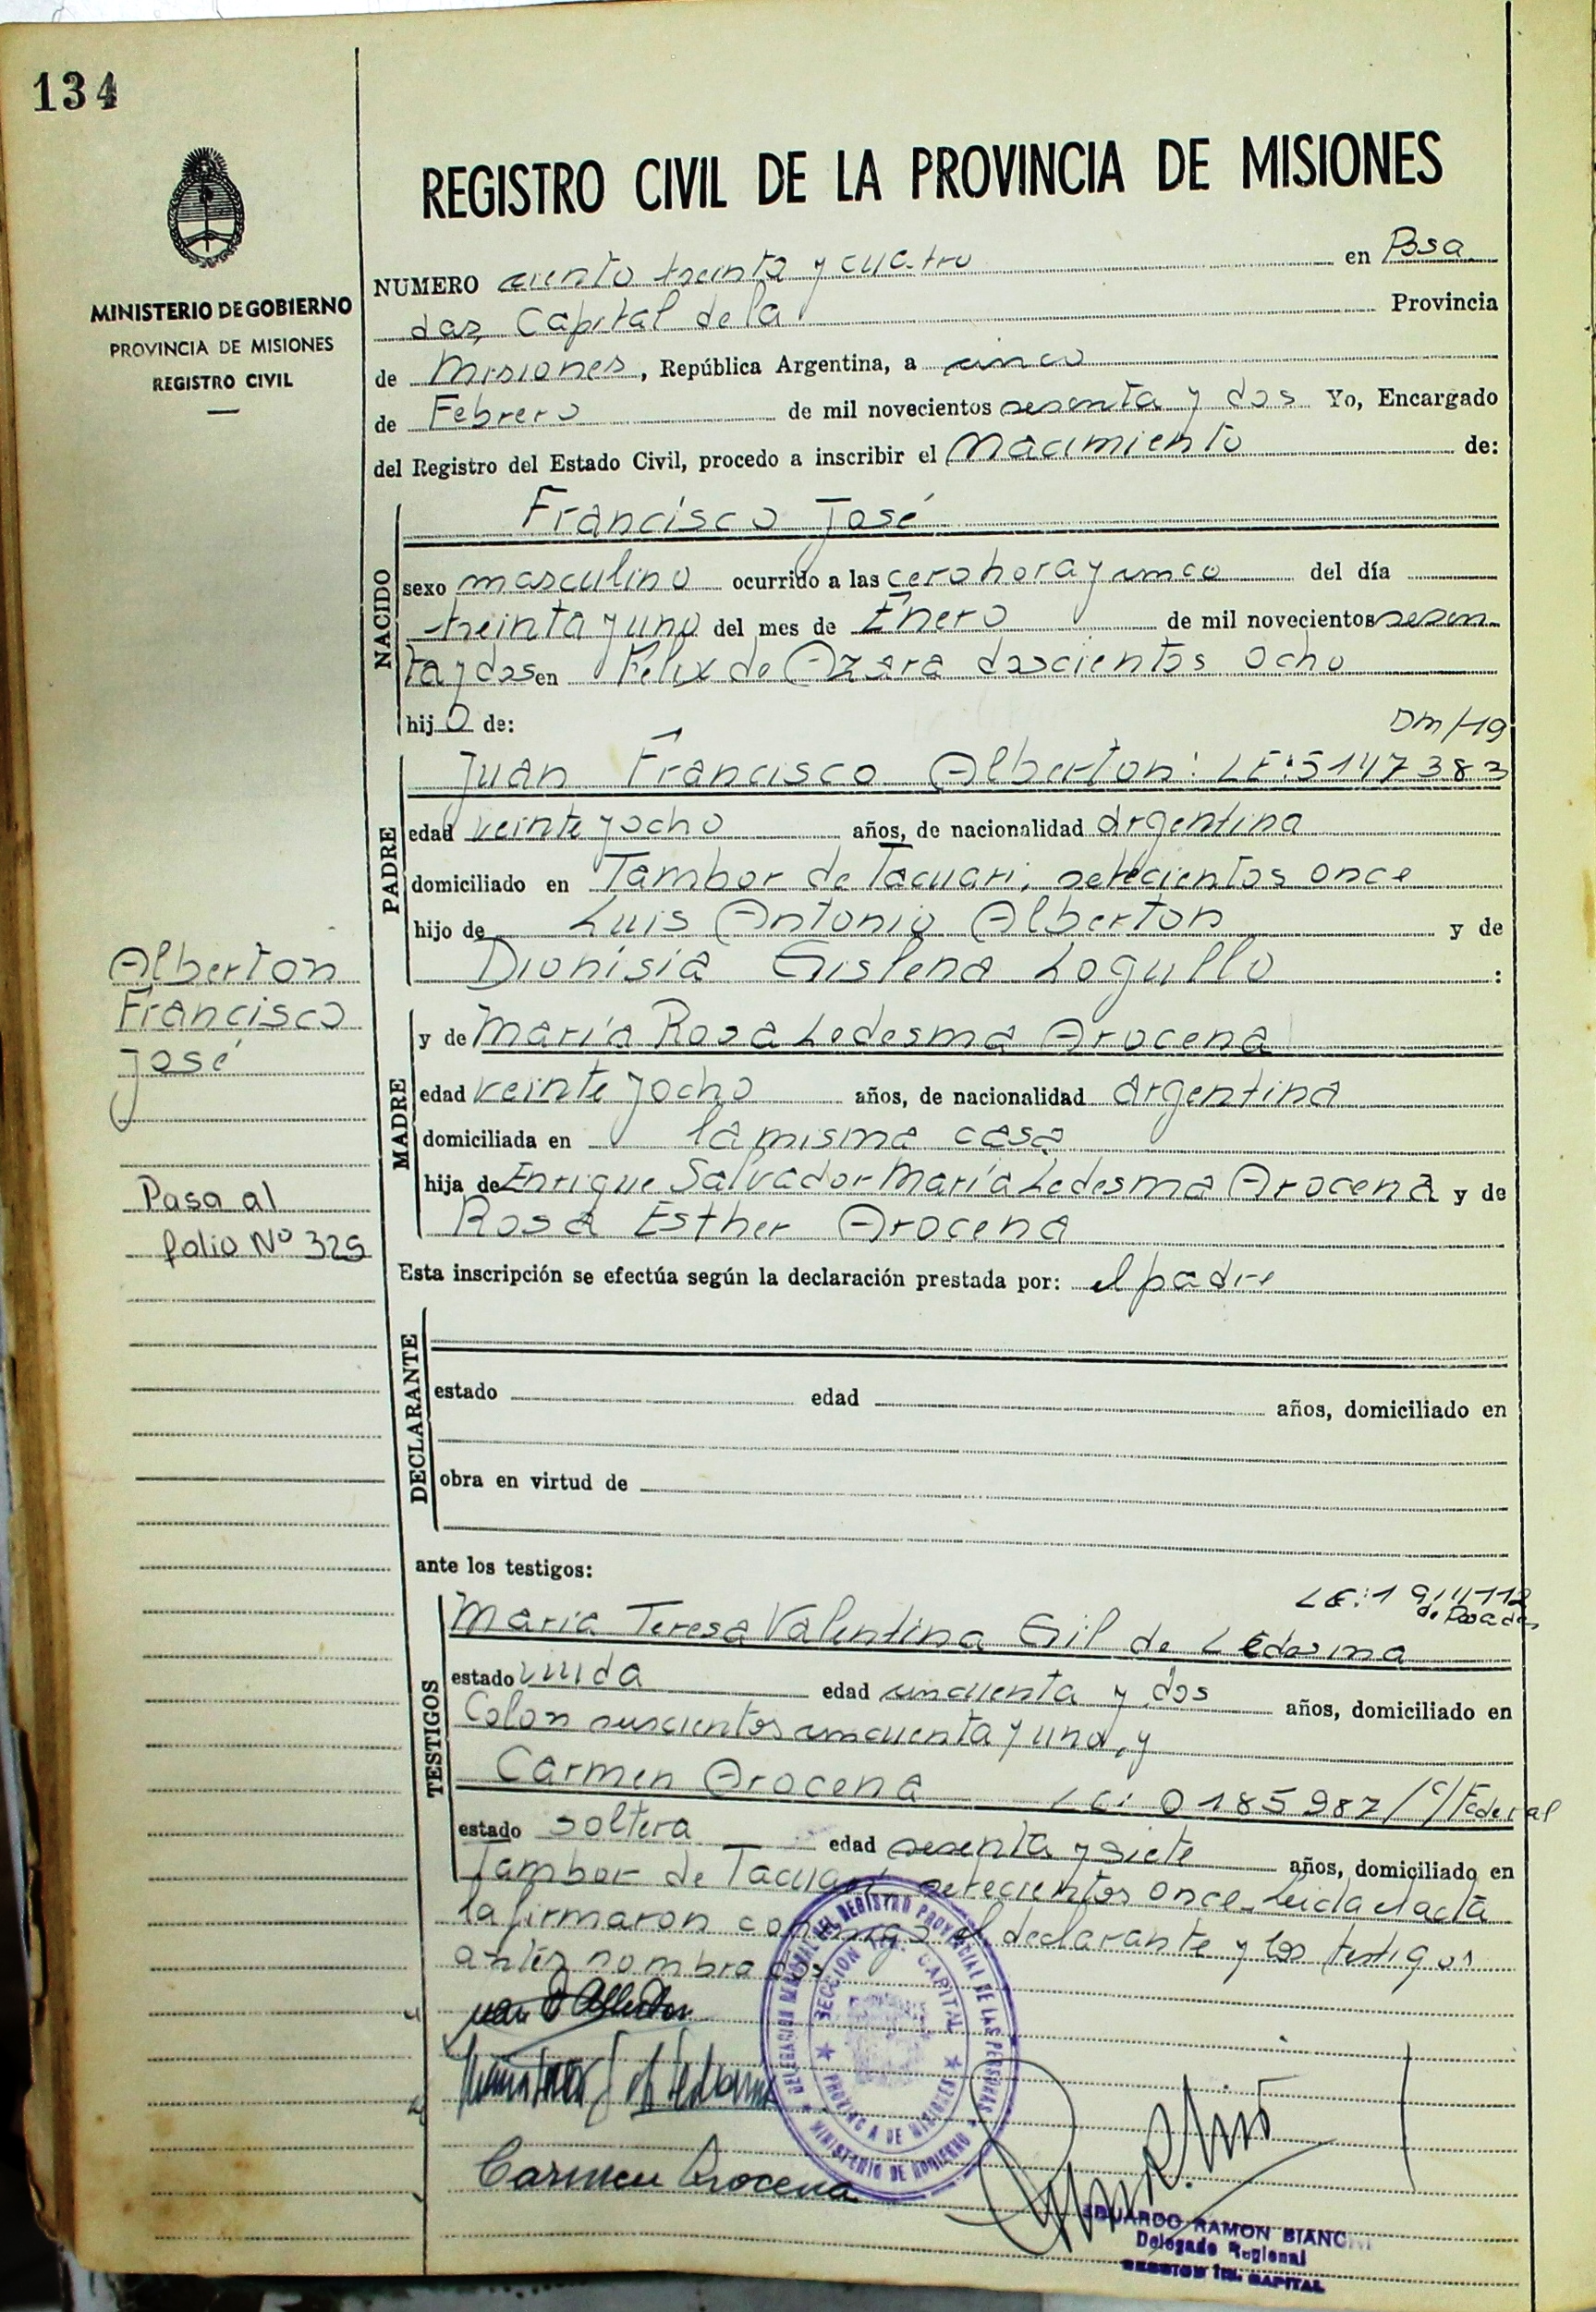 134
MINISTERIO DE GOBIERNO
PROVINCIA DE MISIONES
REGISTRO CIVIL
REGISTRO CIVIL DE LA PROVINCIA DE MISIONES
NUMERO ciento treinta y cuatro en Posa
das, Capital de la Provincia
de Misiones, República Argentina, a cinco
de Febrero de mil novecientos sesenta y dos Yo, Encargado
del Registro del Estado Civil, procedo a inscribir el Nacimiento de:
NACIDO
Francisco José
sexo masculino ocurrido a las cero hora y cinco del día
treinta y uno del mes de Enero de mil novecientos sesen
ta y dos en Félix de Azara doscientos ocho
hijo de:
DM/19
PADRE
Juan Francisco Alberton: LE:5147383
edad veinte y ocho años, de nacionalidad argentina
domiciliado en Tambor de Tacuarí, setecientos once
hijo de Luis Antonio Alberton y de
Dionisia Gislena Logullo :
MADRE
y de María Rosa Ledesma Arocena
edad veinte y ocho años, de nacionalidad argentina
domiciliada en la misma casa
hija de Enrique Salvador María Ledesma Arocena y de
Rosa Esther Arocena
Alberton
Francisco
José
Pasa al
folio Nº 325
Esta inscripción se efectúa según la declaración prestada por: el padre
DECLARANTE
estado edad años, domiciliado en
obra en virtud de
ante los testigos:
de Posadas
TESTIGOS
María Teresa Valentina Gil de Ledesma
estado viuda edad cincuenta y dos años, domiciliado en
Colon cincuenta y uno, y
Carmen Arocena LC: 0185987/C/Federal
estado soltera edad sesenta y siete años, domiciliado en
Tambor de Tacuarí setecientos once. Leida el acta
la firmaron conmigo el declarante y los testigos
antes nombrados
Carmen Arocena
DELEGACION REGIONAL DEL REGISTRO PROVINCIAL DE LAS PERSONAS
MINISTERIO DE GOBIERNO
SECCION 1ra. CAPITAL
PROVINCIA DE MISIONES
EDUARDO RAMON BIANCHI
Delegado Regional
SECCION 1ra. CAPITAL